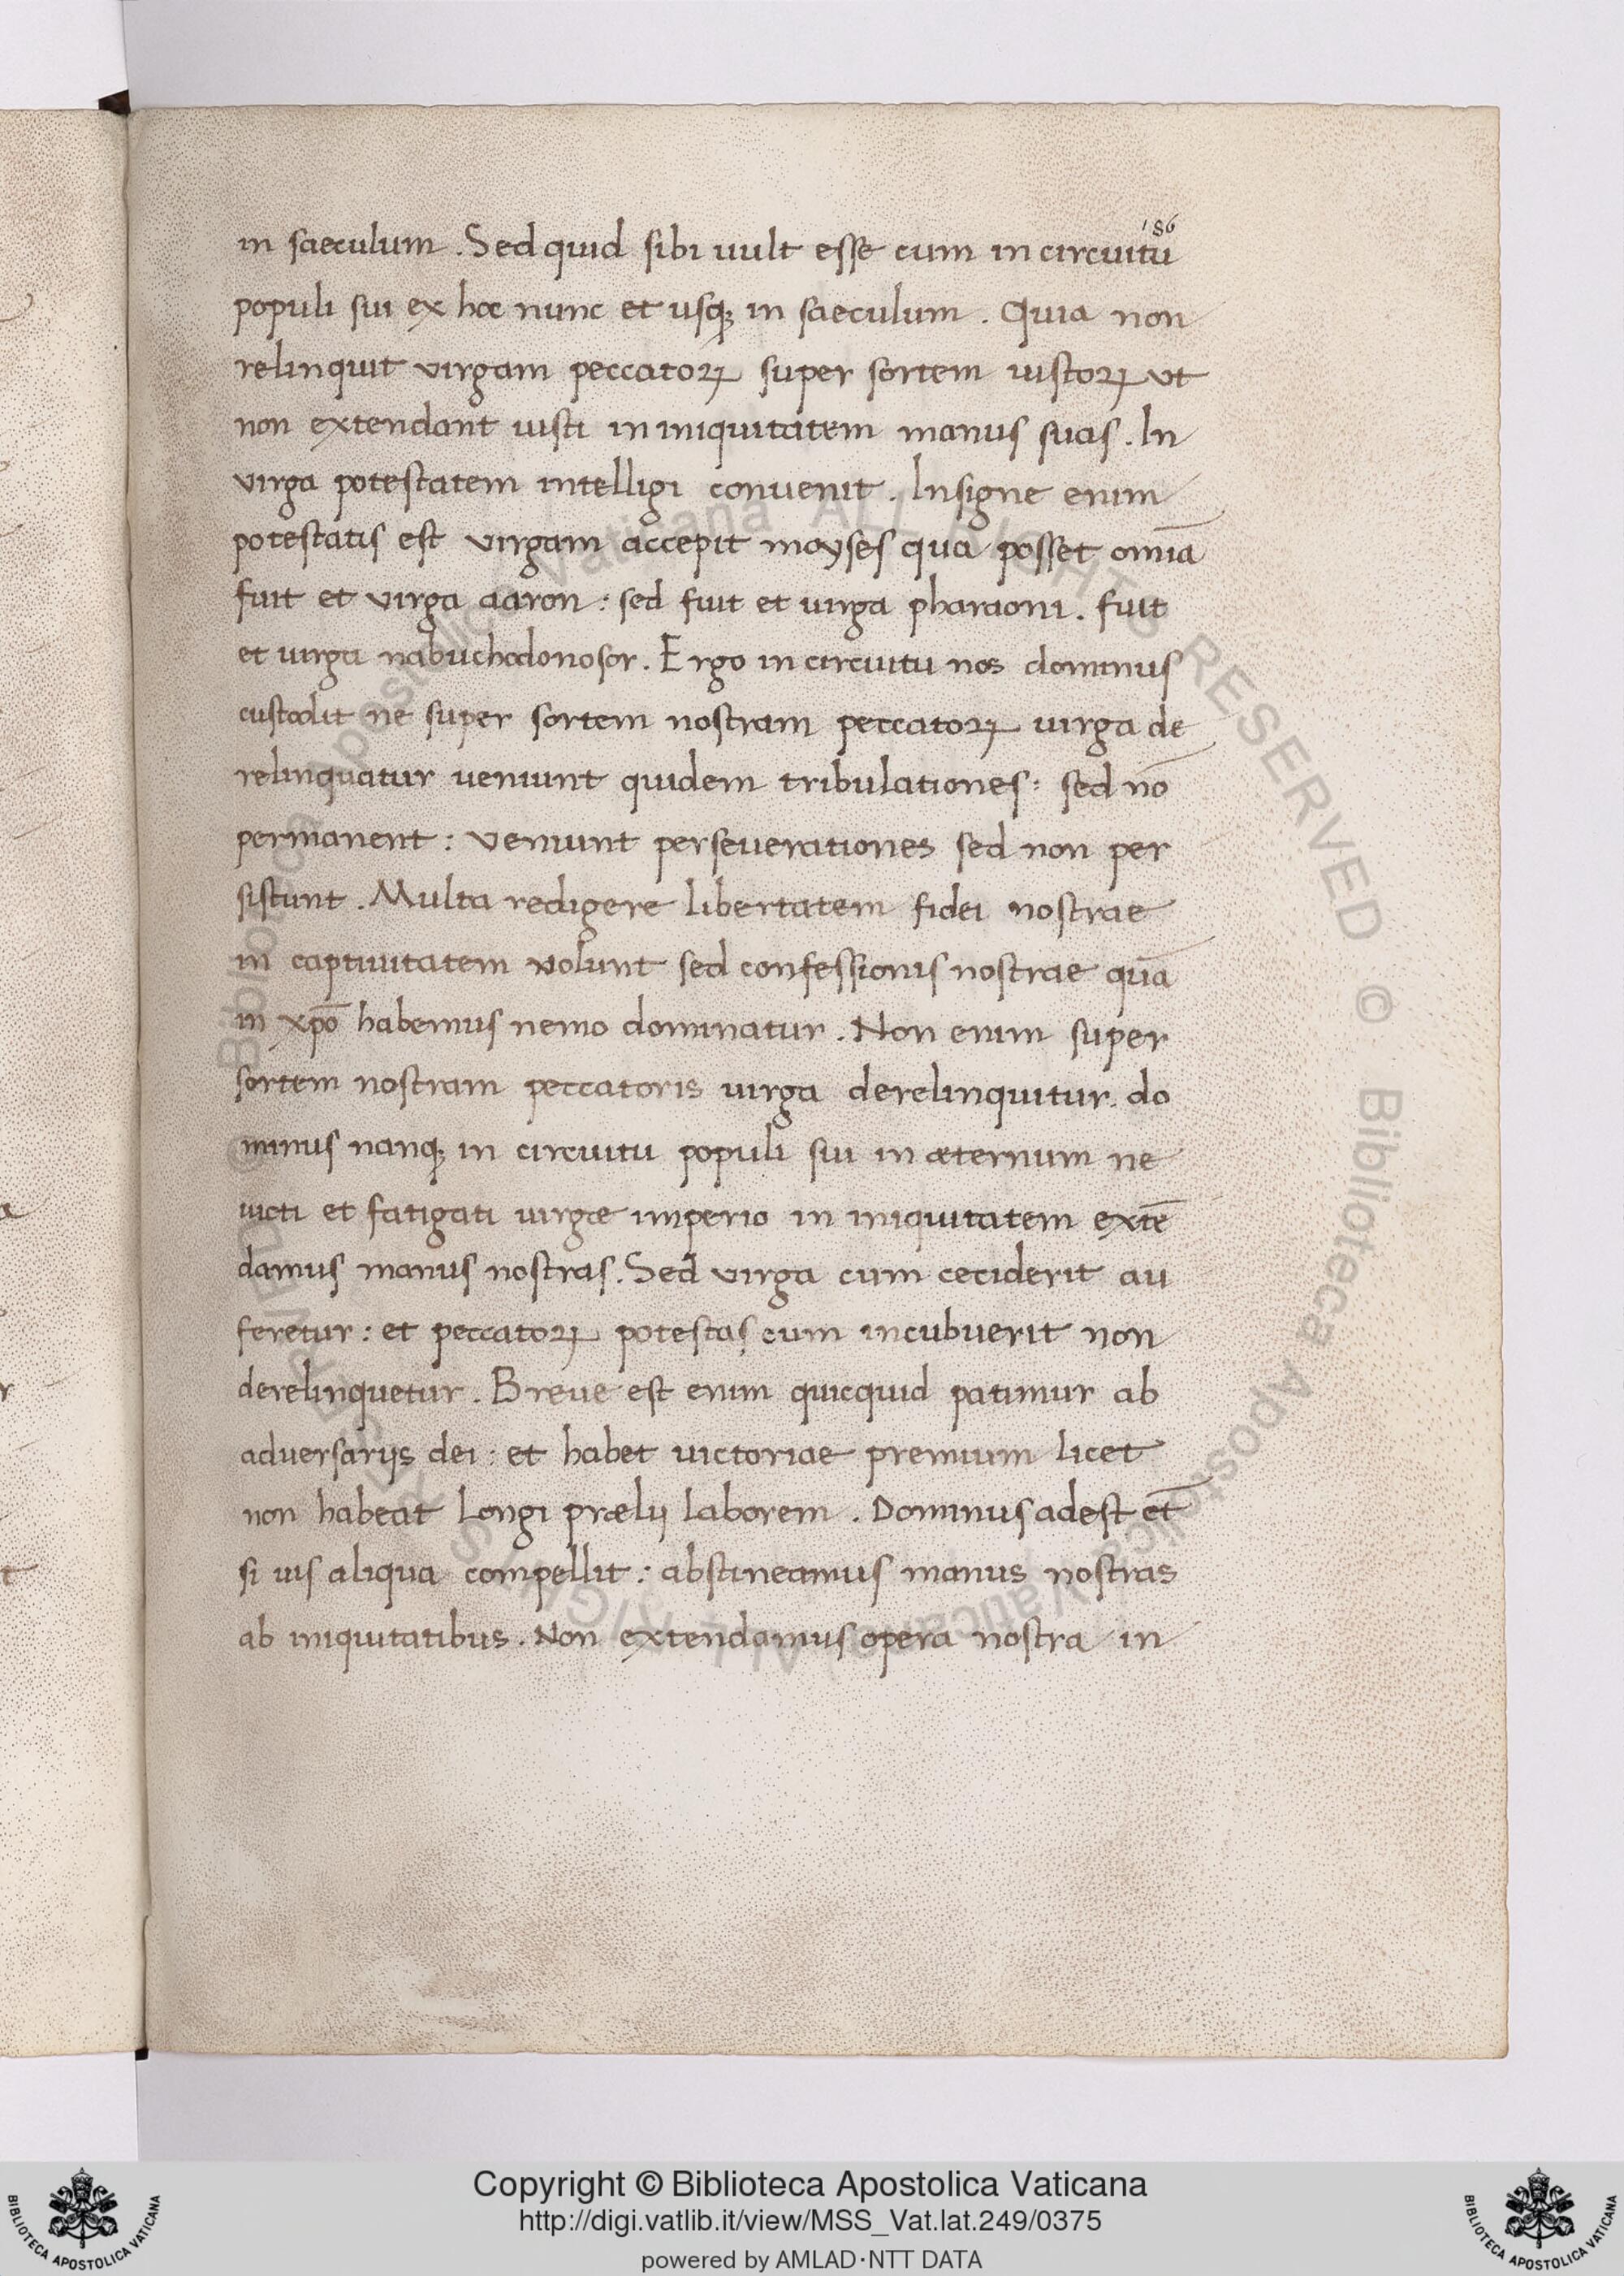 186
in saeculum . Sed quid sibi uult esse cum in circuitu
populi sui ex hoc nunc et usq; in saeculum . Quia non
relinquit virgam peccatoꝝ super sortem iustoꝝ vt
non extendant iusti in iniquitatem manus suas . In
virga potestatem intelligi conuenit . Insigne enim
potestatis est virgam accepit moyses qua posset omīa
fuit et virga aaron : sed fuit et uirga pharaoni . fuit
et uirga nabuchodonosor . Ergo in circuitu nos dominus
custodit ne super sortem nostram peccatoꝝ uirga de
relinquatur ueniunt quidem tribulationes : sed nō
permanent : veniunt perseuerationes sed non per
sistunt . Multa redigere libertatem fidei nostrae
in captiuitatem volunt sed confessionis nostrae quā
in xp̄o habemus nemo dominatur . Non enim super
sortem nostram peccatoris uirga derelinquitur . do
minus nanq; in circuitu populi sui in æternum ne
uicti et fatigati uirgæ imperio in iniquitatem extē
damus manus nostras . Sed virga cum ceciderit au
feretur : et peccatoꝝ potestas cum incubuerit non
derelinquetur . Breue est enim quicquid patimur ab
aduersarijs dei : et habet uictoriae premium licet
non habeat longi prælij laborem . Dominus adest et
si uis aliqua compellit : abstineamus manus nostras
ab iniquitatibus . Non extendamus opera nostra in
Copyright © Biblioteca Apostolica Vaticana
http://digi.vatlib.it/view/MSS_Vat.lat.249/0375
powered by AMLAD·NTT DATA
BIBLIOTECA APOSTOLICA VATICANA
BIBLIOTECA APOSTOLICA VATICANA